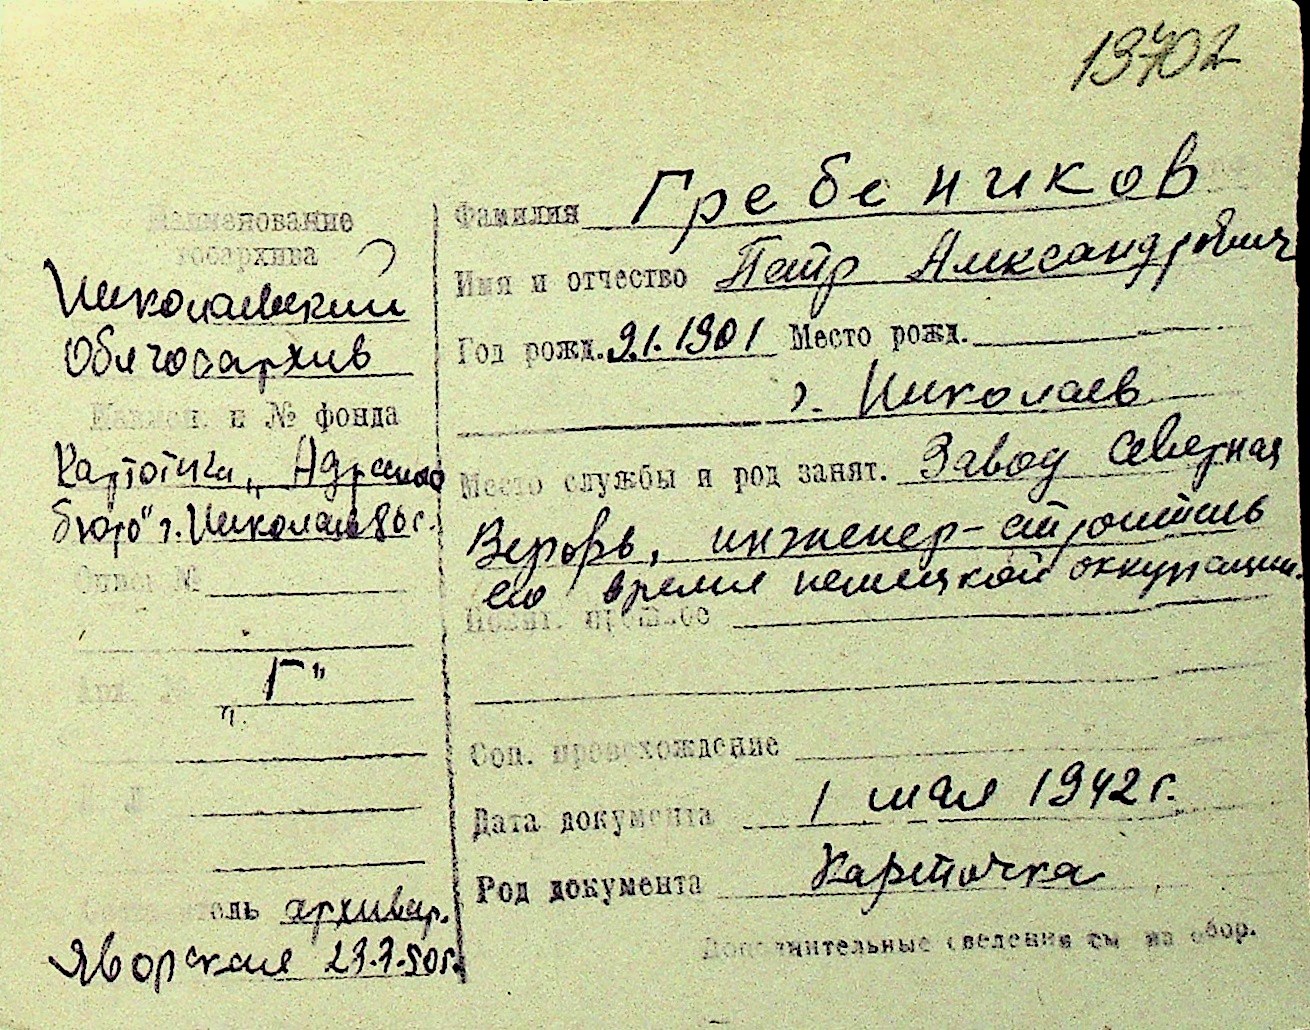 19702
Наименование
госархива
Николаевский
Облгосархив
Наимен. и № фонда
Картотека „Адресного
бюро" г. Николаев
Опись №
Арх. №
„Г"
Составитель архивар.
Яворская 23.3.50г.
Фамилия Гребеников
Имя и отчество Петр Александрович
Год рожд. 9.1.1901 Место рожд.
г. Николаев
Место службы и род занят. Завод Северная
Верфь, инженер-строитель
во время немецкой оккупации.
Полит. прошлое
Соц. происхождение
Дата документа 1 мая 1942г.
Род документа Карточка
Дополнительные сведения см на обор.